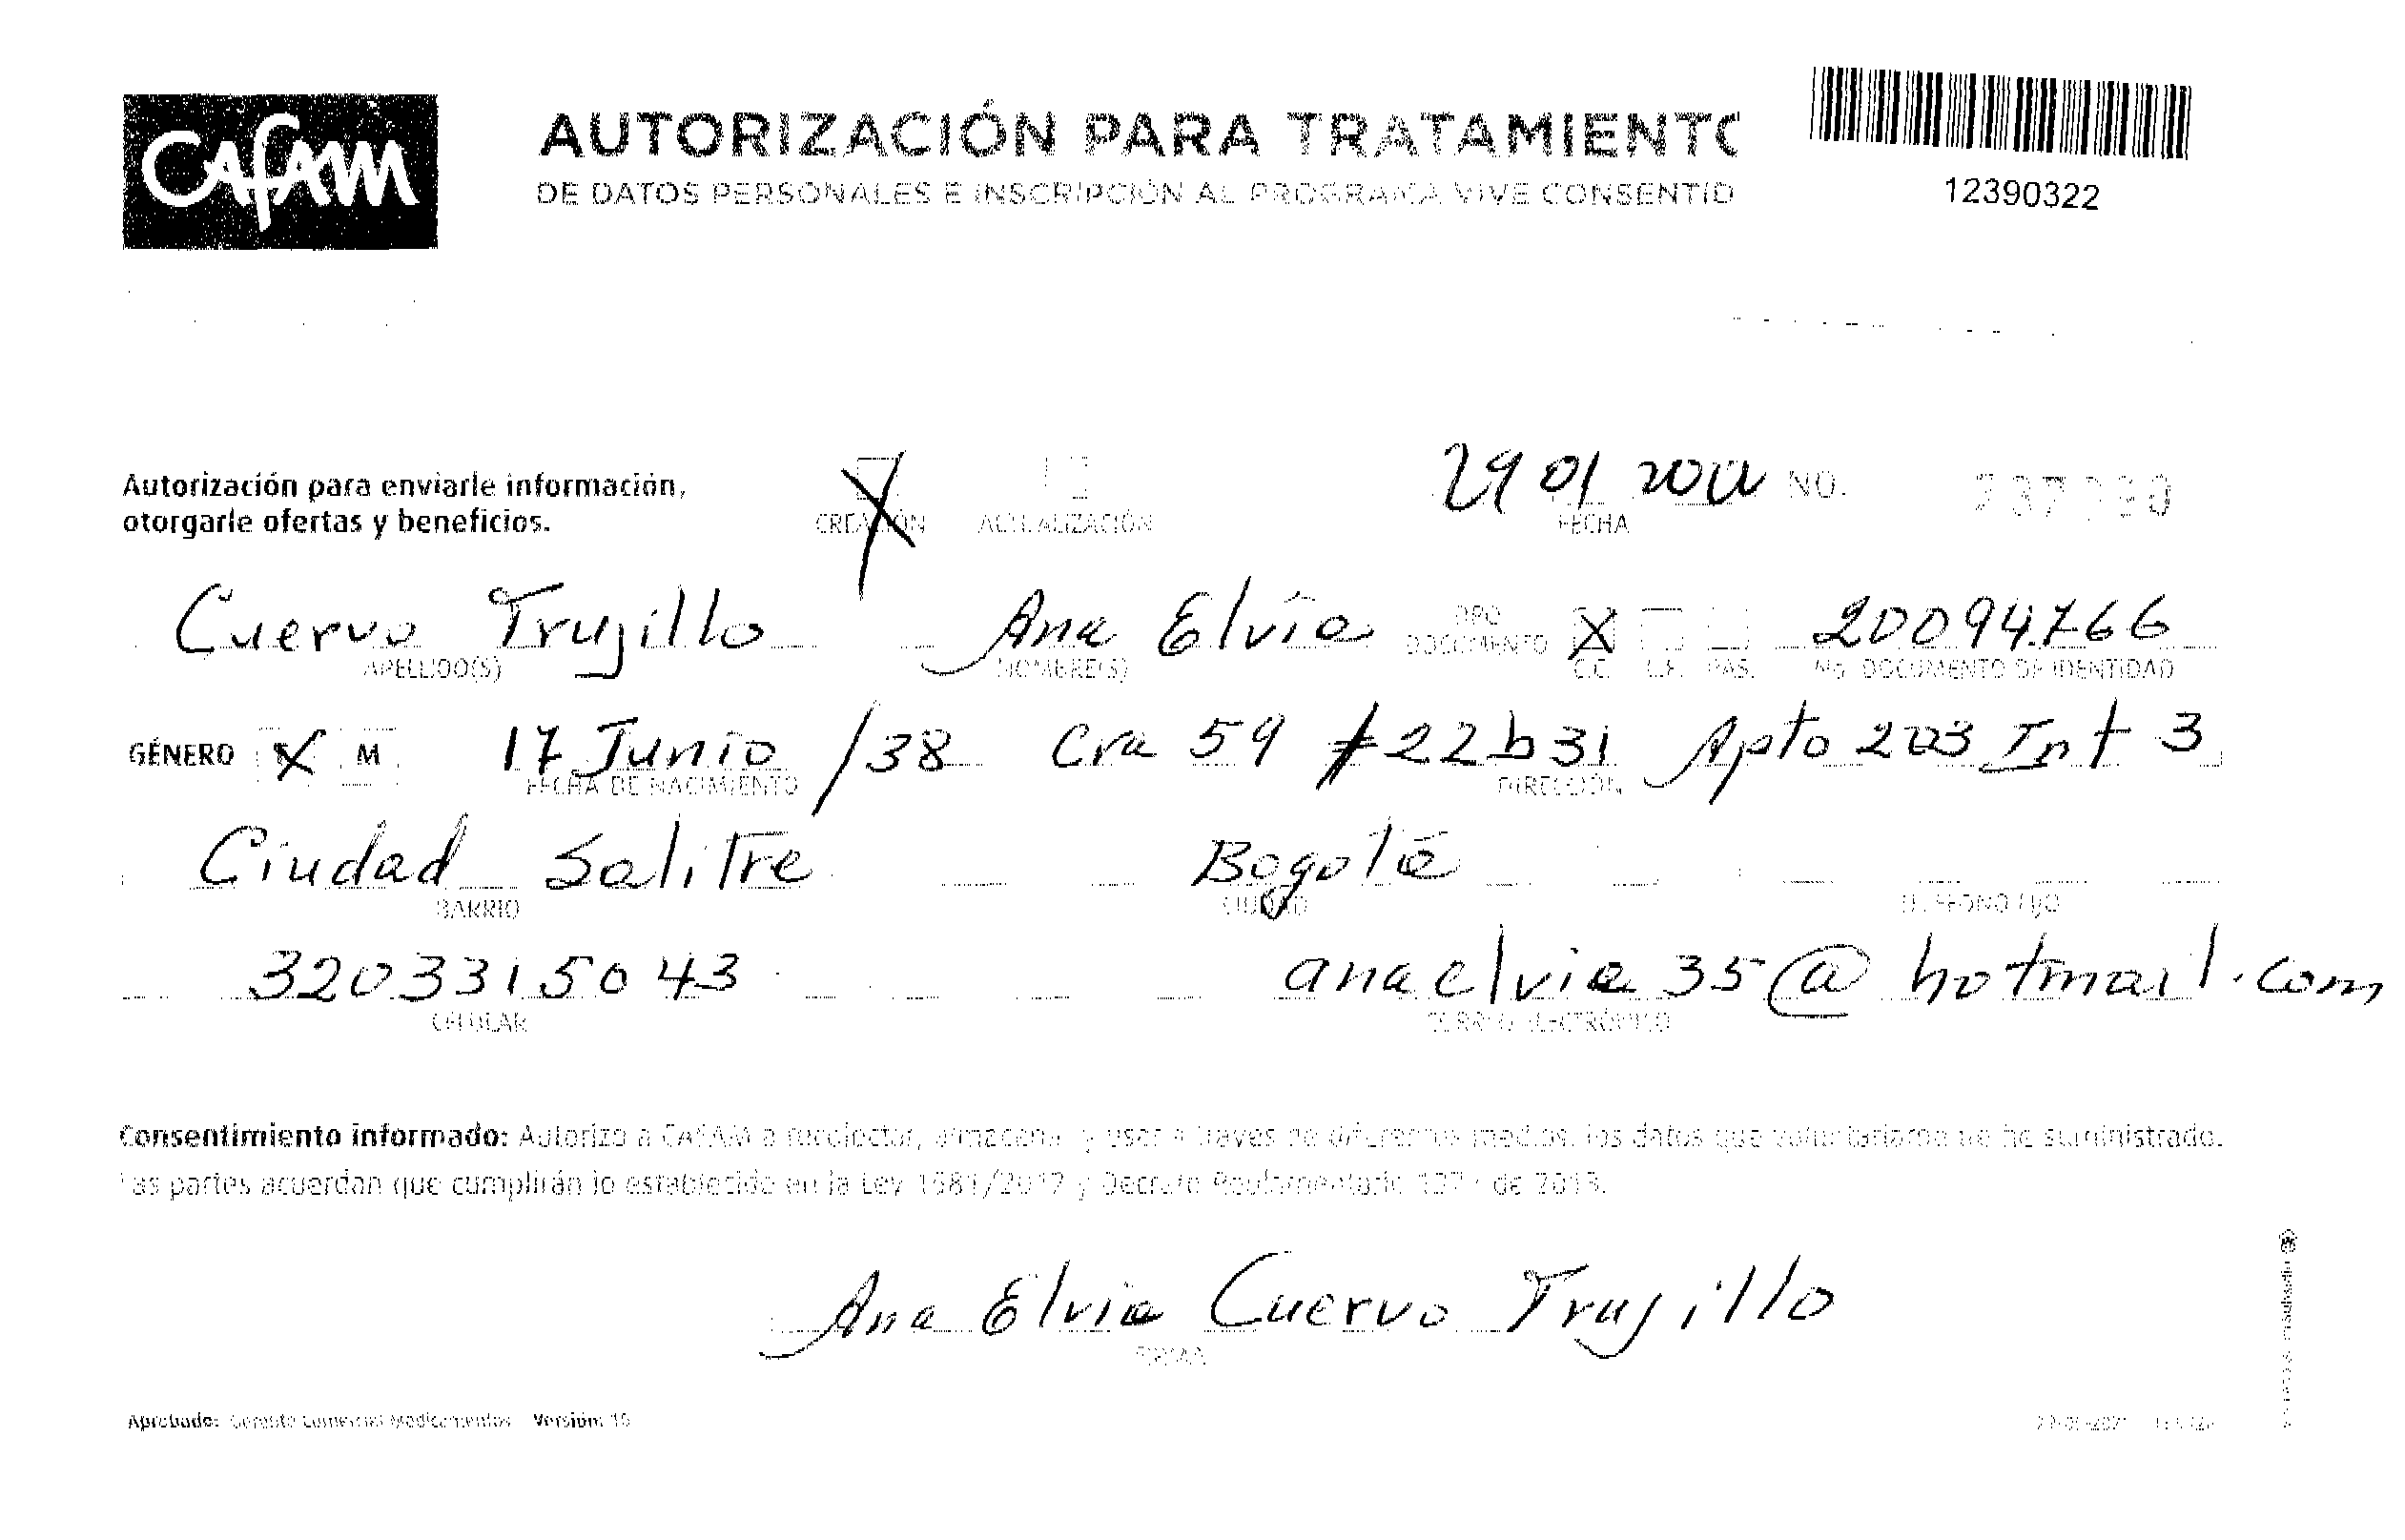 Cafam
AUTORIZACIÓN PARA TRATAMIENTO
DE DATOS PERSONALES E INSCRIPCIÓN AL PROGRAMA VIVE CONSENTID
12390322
Autorización para enviarle información,
otorgarle ofertas y beneficios.
CREACIÓN ACTUALIZACIÓN
29 01 FECHA NO.
Cuervo Trujillo Ana Elvia TIPO DOCUMENTO X C.C. C.E. PAS. 20094.766
APELLIDO(S) NOMBRE(S) No. DOCUMENTO DE IDENTIDAD
GÉNERO X M 17 Junio /38 Cra 59 #22b31 Apto 203 Int 3
FECHA DE NACIMIENTO DIRECCIÓN
Ciudad Salitre Bogotá
BARRIO CIUDAD TELÉFONO FIJO
3203315043 anaelvia35@hotmail.com
CELULAR CORREO ELECTRÓNICO
Consentimiento informado: Autorizo a CAFAM a recolectar, almacenar y usar a través de diferentes medios, los datos que voluntariamente he suministrado.
Las partes acuerdan que cumplirán lo establecido en la Ley 1581/2012 y Decreto Reglamentario de 2013.
Ana Elvia Cuervo Trujillo
FIRMA
Aprobado: Gerente Comercial Medicamentos Versión: 10